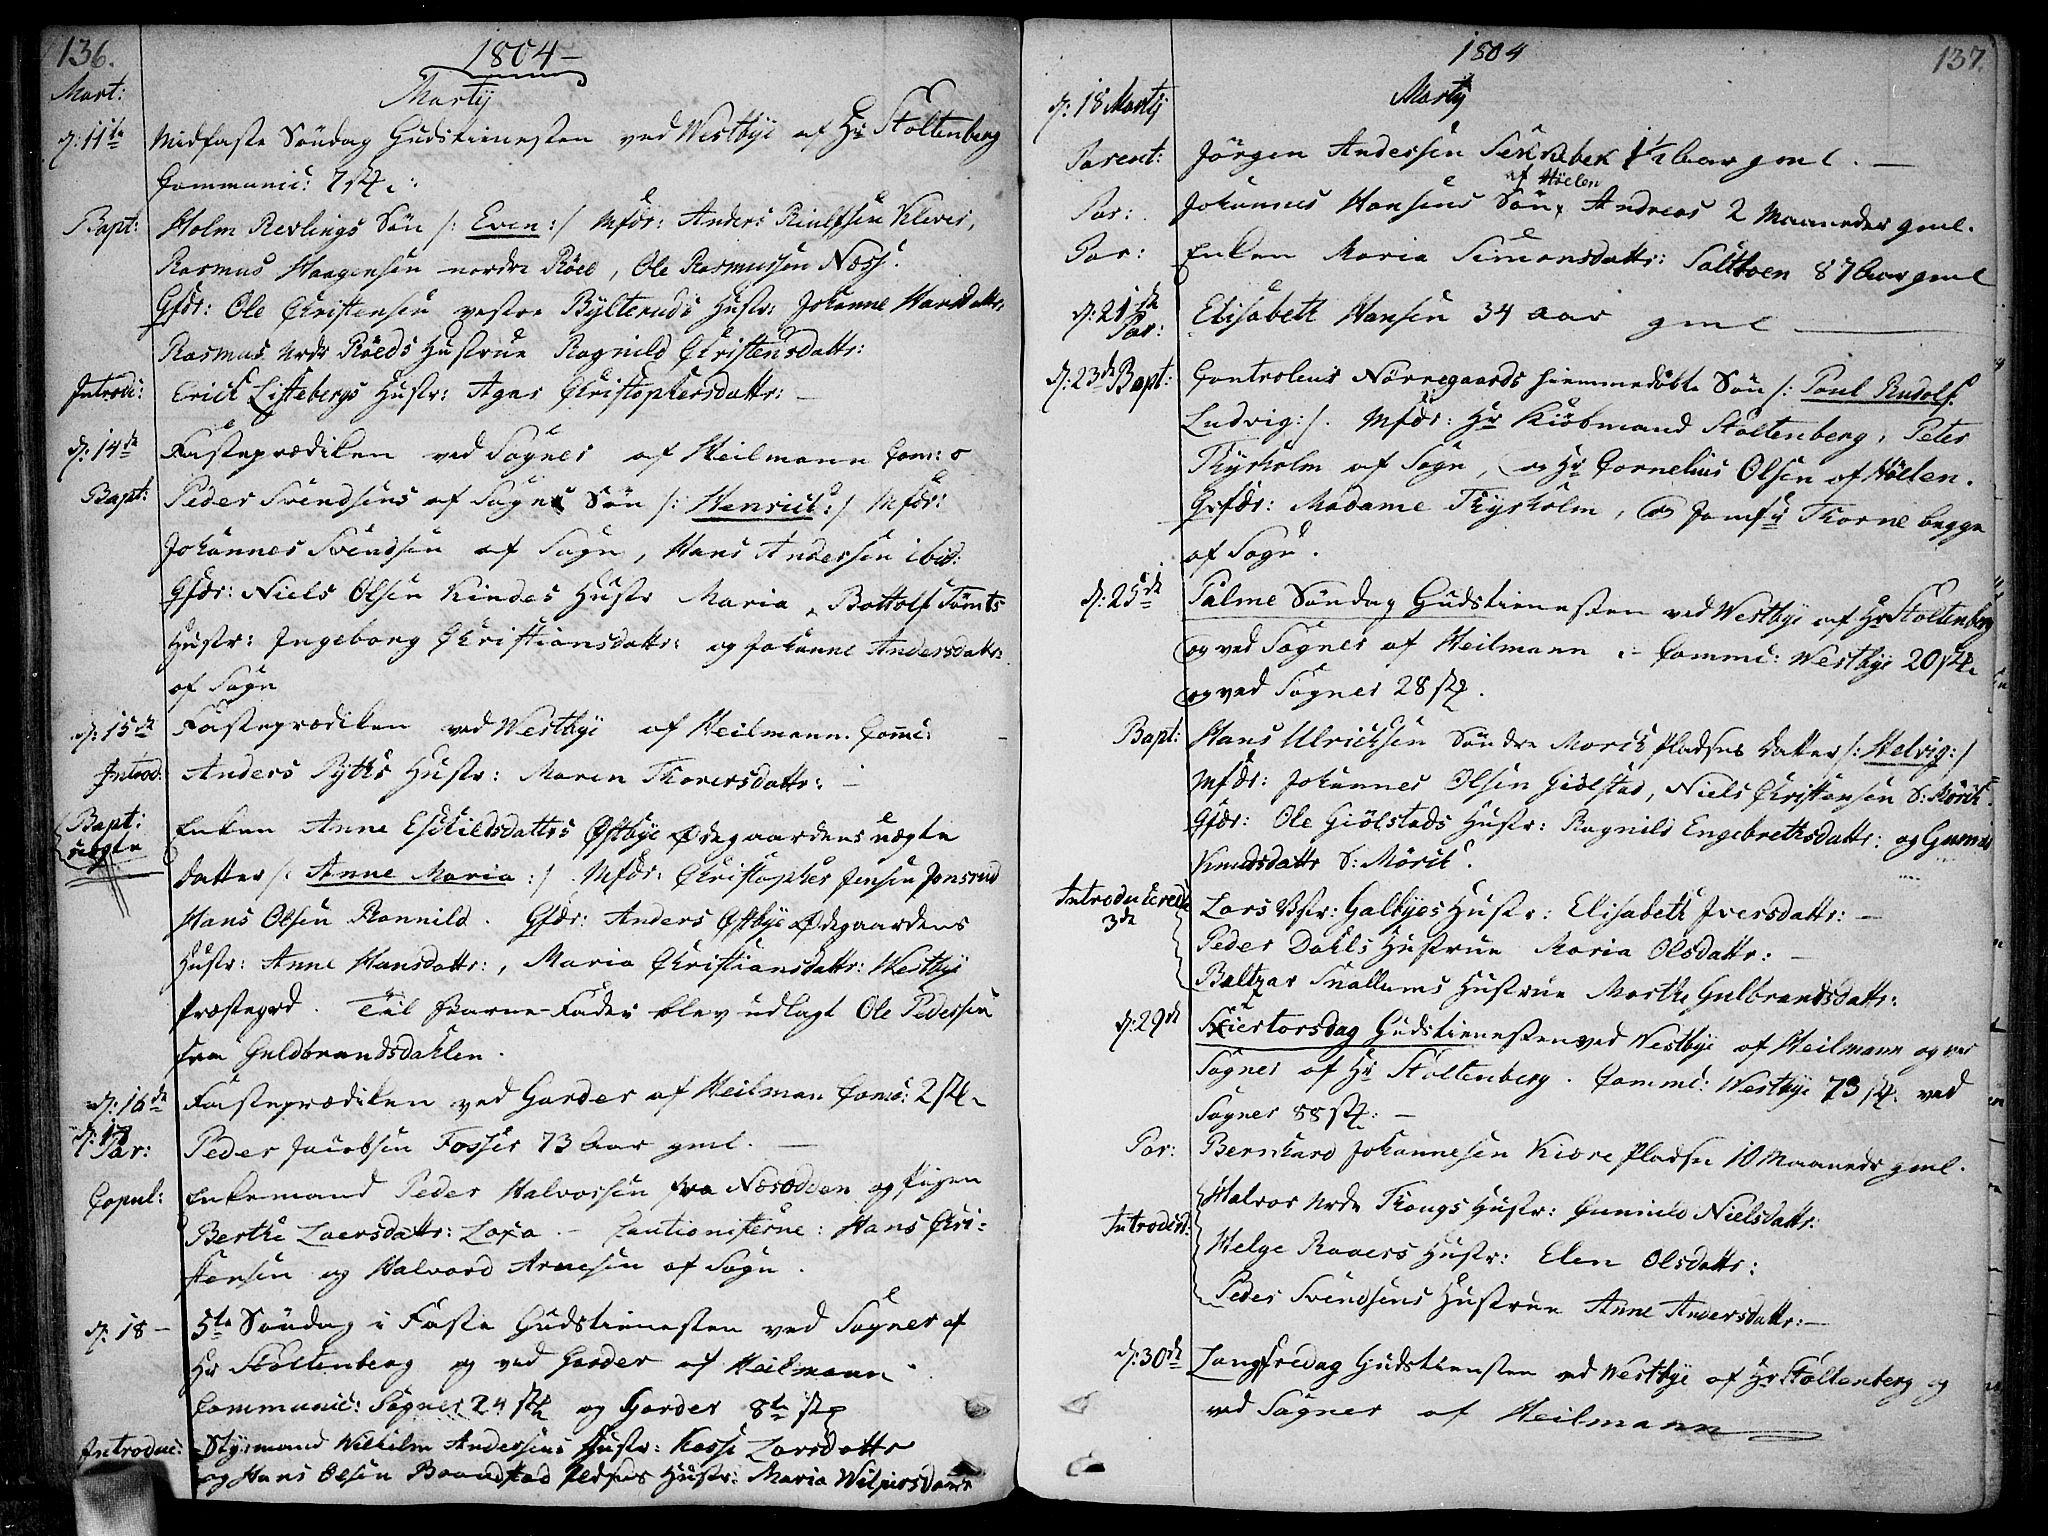 136.
1804 –
Mart:
Martij
d: 11te Midfaste Söndag Gudstienesten ved Westbye af Hr Stoltenberg
Communic: 7 st:
Bapt: Holm Revlings Sön /: Even :/ Mfdr: Anders
Rasmus Haagensen nordre Röed, Ole Rasmussen Næss.
Gfdr: Ole Christensen vestre Bylteruds Hustr: Johanne Hansdattr:
Rasmus nrdr Röeds Hustrue Ragnild Christensdattr:
Introd: Erick Listebergs Hustr: Agnes Christophersdattr: –
d: 14de Fasteprædiken ved Sogner af Heilmann Com: 0
Bapt: Peder Svendsens af Sogn Sön /: Henrich :/ Mfdr:
Johannes Svendsen af Sogn, Hans Andersen ibid:
Gfdr: Niels Olsen Kindes Hustr Maria, Bottolf Tömts
Hustr: Ingeborg Christiansdattr: og Johanne Andersdattr:
af Sogn
d: 15de Fasteprædiken ved Westbye af Heilmann. Com:
Introd: Anders Hustr: Maren Thoresdattr: –
Bapt: Enken Anne Eskildsdatters Østbye Ødegaardens uægte
uægte
datter /: Anne Maria :/ Mfdr: Christopher Jensen Jonsrud
Hans Olsen Ronnild. Gfdr: Anders Østbye Ødegaardens
Hustr: Anne Hansdattr:, Maria Christiansdattr: Westbye
Præstegrd. Til Barne-Fader blev udlagt Ole Pedersen
fra Guldbrandsdahlen.
d: 16de Fasteprædiken ved Garder af Heilman Com: 2 st:
d: 17
Par: Peder Jacobsen Fosser 73 aar gml. –
Copul: Enkemand Peder Halvorsen fra Næsodden og Pigen
Berthe Laersdattr: Laxa. – Cautionisterne: Hans Chri-
stensen og Halvord Arnesen af Sogn.
d: 18 – 5te Söndag i Faste Gudstienesten ved Sogner af
Hr Stoltenberg og ved Garder af Heilmann
Communic: Sogner 24 st: og Garder 8te st:
Introduc: Styrmand Wilhelm Andersens Hustr: Larsdattr
og Hans Olsen Hustr: Maria
1804
137.
d: 18 Martij
Martij
Parent: Jörgen Andersen 1½ aar gml. –
af Höelen
Par: Johannes Hansens Sön, Andreas 2 Maaneder gml.
Par: Enken Maria Simonsdattr: 87 aar gml
d: 21de
Par: Elisabeth Hansen 34 aar gml –
d: 23de Bapt: Controleur Nörregaards hiemmedöbte Sön /: Paul Rudolf
Ludvig :/. Mfdr: Hr Kiöbmand Stoltenberg, Peter
Thyrholm af Sogn, og Hr Cornelius Olsen af Höelen.
Gvfdr: Madame Thyrholm, og Jomfr Thorne begge
af Sogn.
d: 25de Palme Söndag Gudstienesten ved Westbye af Hr Stoltenberg
og ved Sogner af Heilmann – Comme: Westbye 20 st:
og ved Sogner 28 st:
Bapt: Hans Ulricksen Söndre Mörck Pladsens datter /: Helvig :/
Mfdr: Johannes Olsen Giölstad, Niels Christensen S: Mörck.
Gfdr: Ole Giölstads Hustr: Ragnild Engebrethsdattr: og Gunnil
Knudsdattr S: Mörck.
Introducerede
3de
Lars Vstr: Galbyes Hustr: Elisabeth Iversdattr: –
Peder Dahls Hustrue Maria Olsdattr: –
Baltzar Snallums Hustrue Marthe Gulbrandsdattr:
d: 29de Skiertorsdag Gudstienesten ved Westbye af Heilmann og ved
Sogner af Hr Stoltenberg. Comme: Westbye 73 st: ved
Sogner 88 st: –
Par: Bernhard Johannesen Kiöre Pladsen 10 Maaneder gml.
Introduct: Halvor nrdr Haugs Hustr: Gunnild Nielsdattr:
Helge Raaers Hustr: Elen Olsdattr:
Peder Svendsens Hustrue Anne Andersdattr: –
d: 30de Langfredag Gudstiensten ved Westbye af Hr Stoltenberg og
ved Sogner af Heilmann